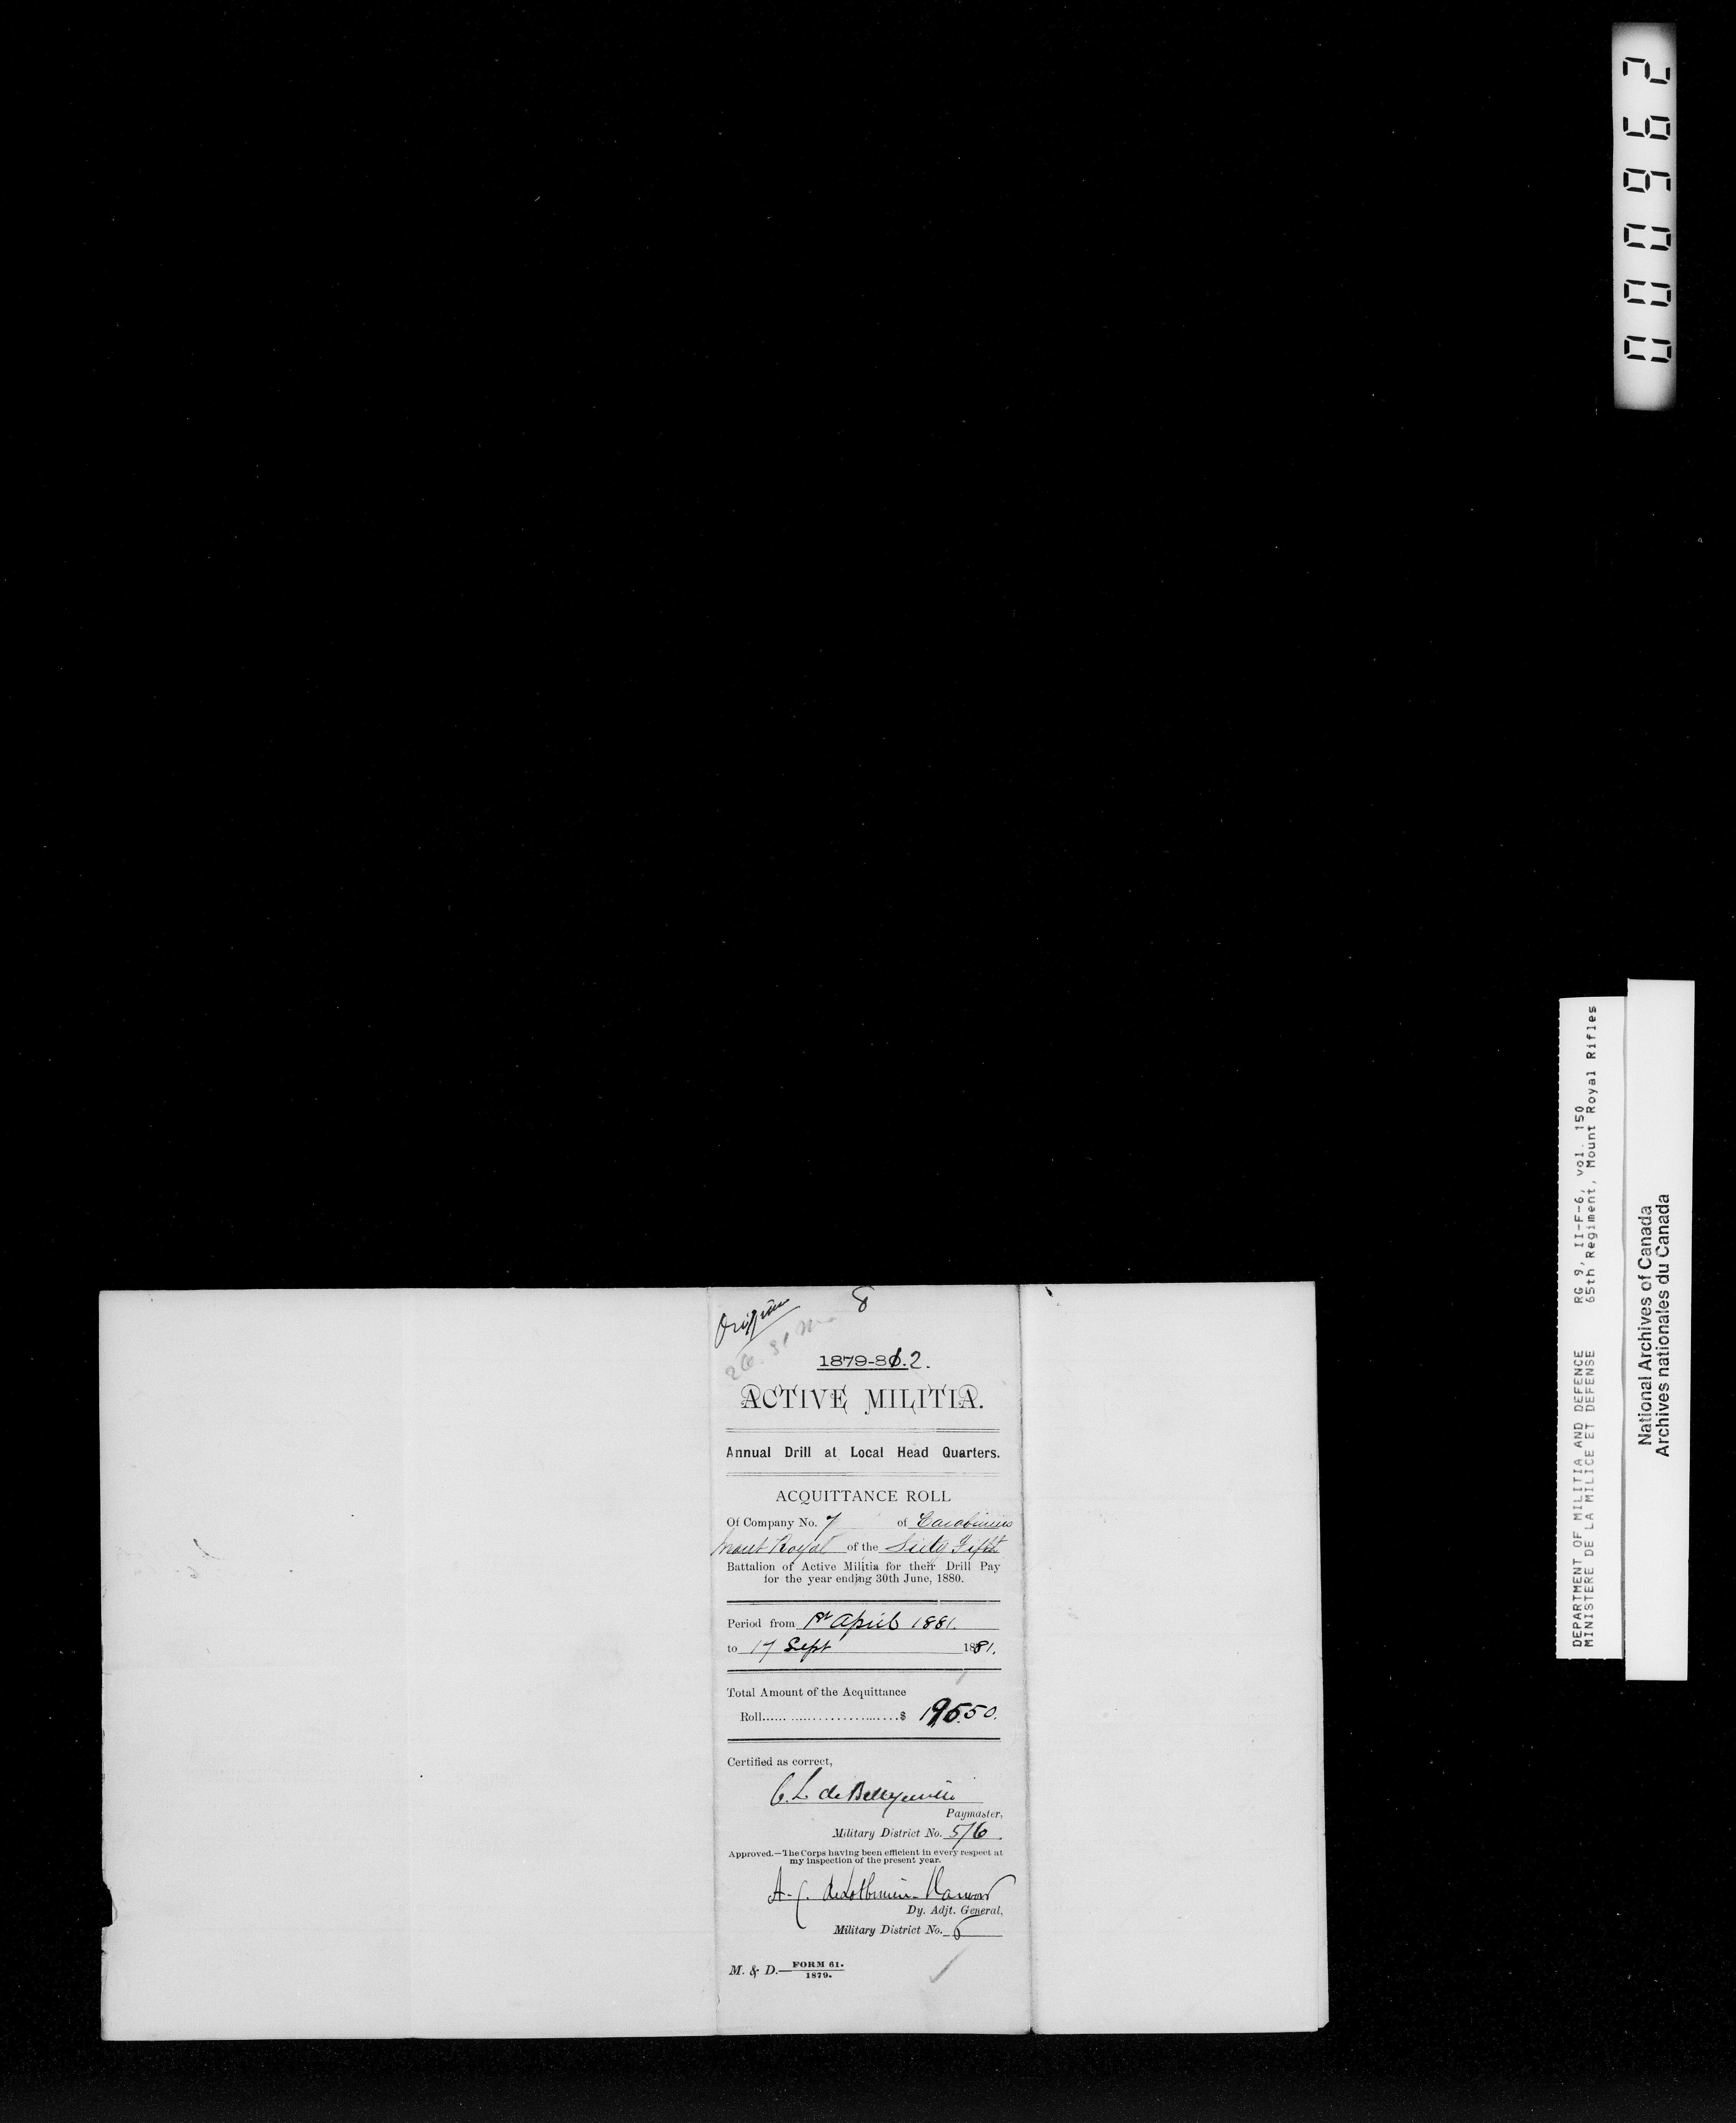 8
1879-81.2.
ACTIVE MILITIA.
Annual Drill at Local Head Quarters.
ACQUITTANCE ROLL
Of Company No. 7 of Carabiniers
Mount Royal of the Sixty Fifth
Battalion of Active Militia for their Drill Pay
for the year ending 30th June, 1880.
Period from 1st April 1881.
to 17 Sept 1881.
Total Amount of the Acquittance
Roll..................$ 195.50.
Certified as correct,
C. L. de Bellefeuille
Paymaster,
Military District No. 5/6.
Approved.—The Corps having been efficient in every respect at
my inspection of the present year.
A. C. de Lotbinière-Harwood
Dy. Adjt. General,
Military District No. 6
M. & D.—FORM 61.
1879.
000962
DEPARTMENT OF MILITIA AND DEFENCE RG 9, II-F-6, vol. 150
MINISTERE DE LA MILICE ET DEFENSE 65th Regiment, Mount Royal Rifles
National Archives of Canada
Archives nationales du Canada